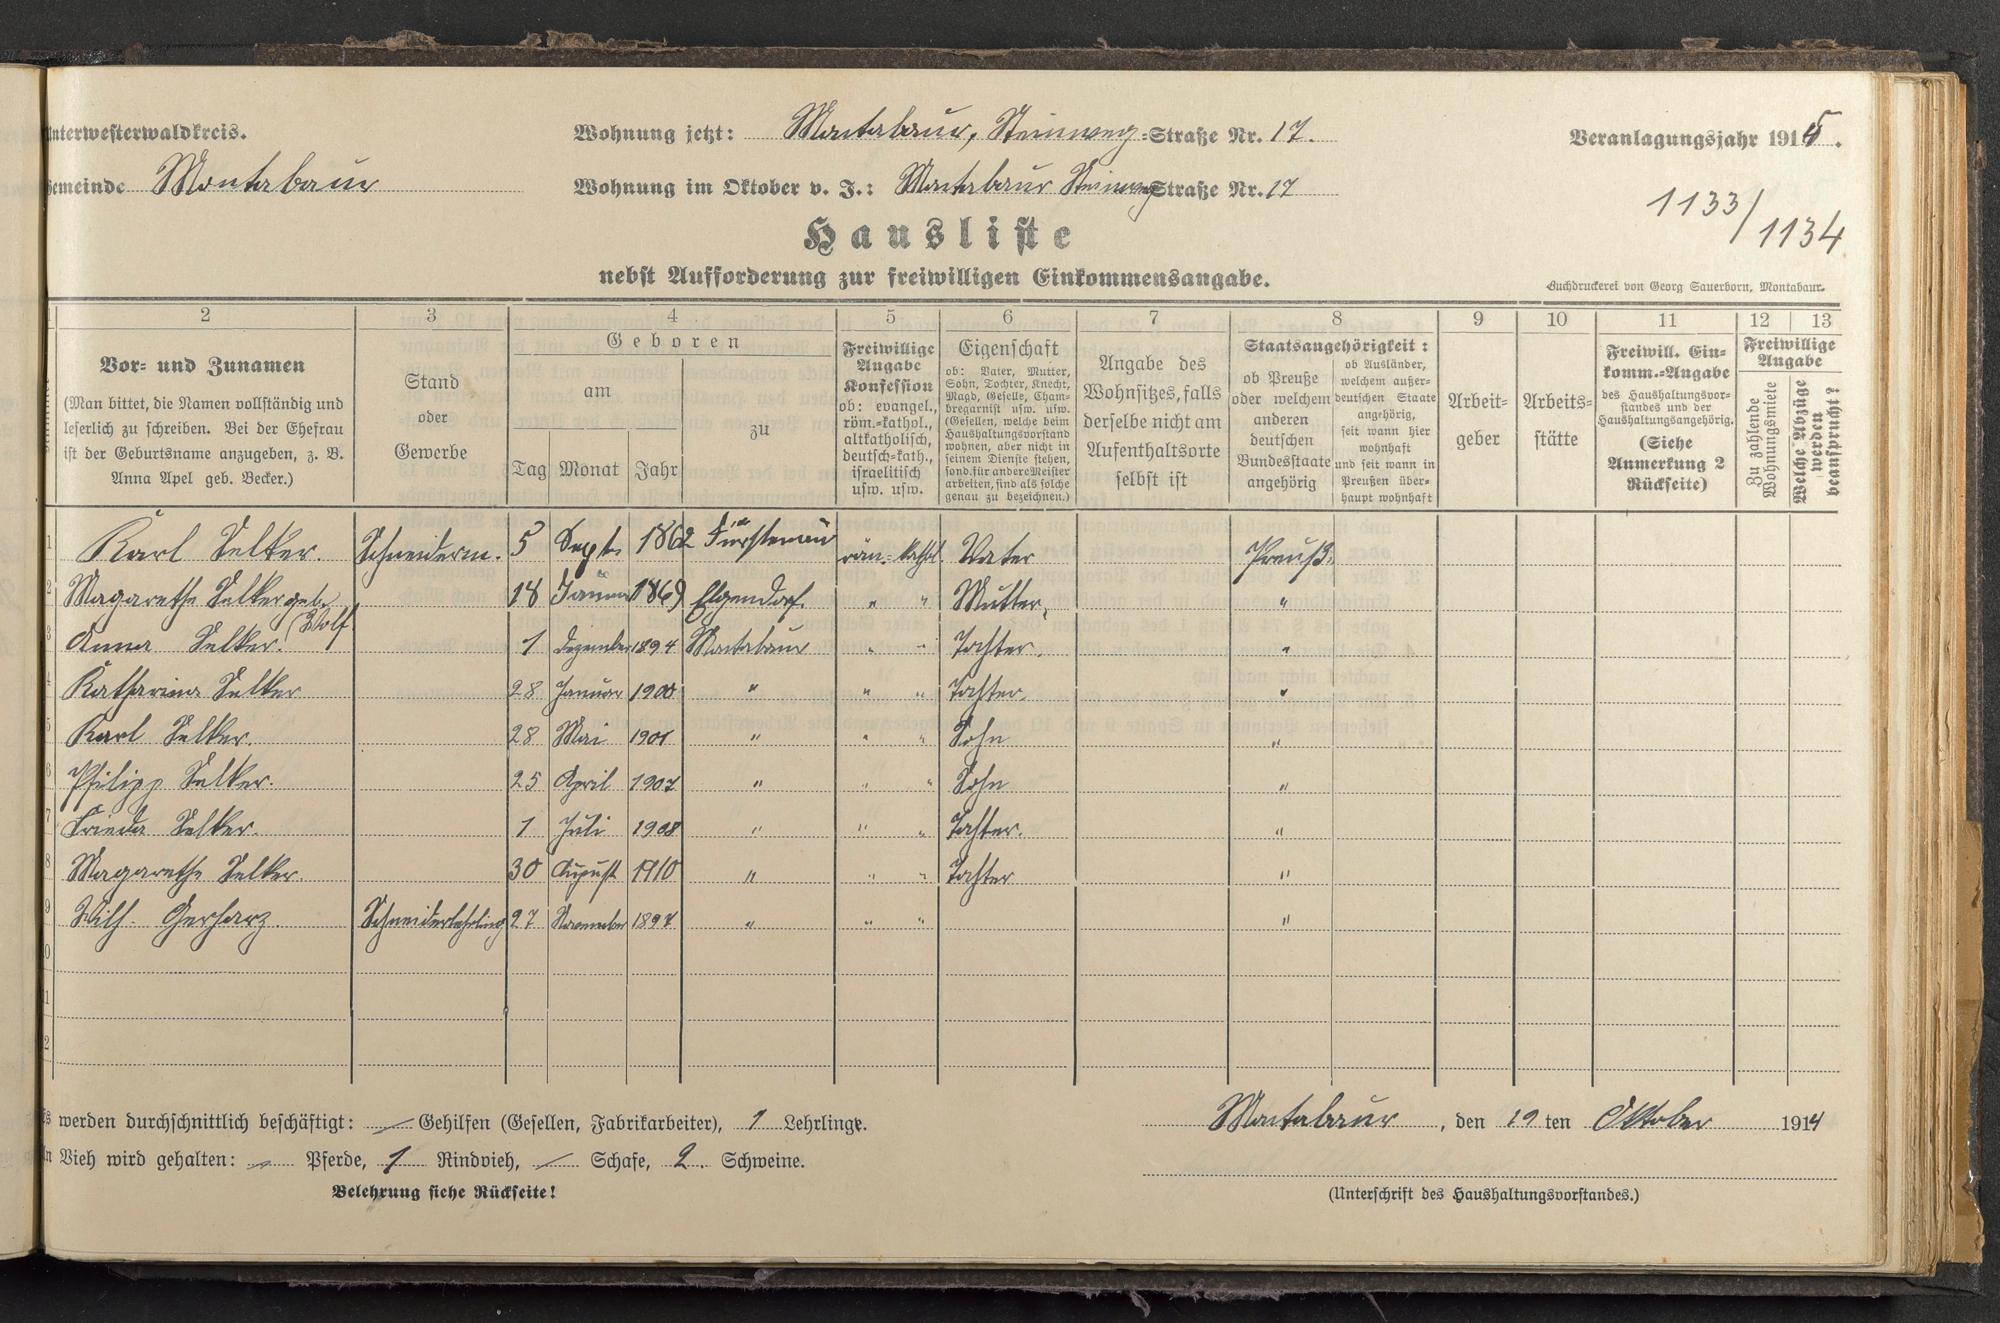 Unterwesterwaldkreis.
Gemeinde Montabaur
Wohnung jetzt: Montabaur, Steinweg-Straße Nr. 17.
Wohnung im Oktober v. J.: Montabaur Steinweg Straße Nr. 17
Veranlagungsjahr 1915.
1133/1134
Hausliste
nebst Aufforderung zur freiwilligen Einkommensangabe.
Buchdruckerei von Georg Sauerborn, Montabaur.
2 3 4 5 6 7 8 9 10 11 12 13
Vor- und Zunamen
(Man bittet, die Namen vollständig und
leserlich zu schreiben. Bei der Ehefrau
ist der Geburtsname anzugeben, z. B.
Anna Apel geb. Becker.)
Stand
oder
Gewerbe
Geboren
am
Tag Monat Jahr
zu
Freiwillige
Angabe
Konfession
ob: evangel.,
röm.-kathol.,
altkatholisch,
deutsch-kath.,
israelitisch
usw. usw.
Eigenschaft
ob: Vater, Mutter,
Sohn, Tochter, Knecht,
Magd, Geselle, Cham-
bregarnist usw. usw.
(Gesellen, welche beim
Haushaltungsvorstand
wohnen, aber nicht in
seinem Dienste stehen,
sond. für andere Meister
arbeiten, sind als solche
genau zu bezeichnen.)
Angabe des
Wohnsitzes, falls
derselbe nicht am
Aufenthaltsorte
selbst ist
Staatsangehörigkeit:
ob Preuße
oder welchem
anderen
deutschen
Bundesstaate
angehörig
ob Ausländer,
welchem außer-
deutschen Staate
angehörig,
seit wann hier
wohnhaft
und seit wann in
Preußen über-
haupt wohnhaft
Arbeit-
geber
Arbeits-
stätte
Freiwill. Ein-
komm.-Angabe
des Haushaltungsvor-
standes und der
Haushaltungsangehörig.
(Siehe
Anmerkung 2
Rückseite)
Freiwillige
Angabe
Zu zahlende
Wohnungsmiete
Welche Abzüge
werden
beansprucht?
1 Karl Selker. Schneiderm. 5 Sept. 1862 Fürstenau röm.-kathol. Vater Preuß.
2 Magarethe Selker geb. 18 Januar 1869 Elgendorf. " " Mutter. "
(Wolf.
3 Anna Selker. 1 Dezember 1894 Montabaur " " Tochter. "
4 Katharina Selker 28 Januar 1900 " " " Tochter. "
5 Karl Selker. 28 Mai 1901 " " " Sohn "
6 Philipp Selker. 25 April 1907 " " " Sohn "
7 Frieda Selker. 1 Juli 1908 " " " Tochter. "
8 Magarethe Selker. 30 August 1910 " " " Tochter "
9 Wilh. Gerharz. Schneiderlehrling 27 November 1897 " " " "
0
1
2
werden durchschnittlich beschäftigt: — Gehilfen (Gesellen, Fabrikarbeiter), 1 Lehrlinge.
Vieh wird gehalten: — Pferde, 1 Rindvieh, — Schafe, 2. Schweine.
Belehrung siehe Rückseite!
Montabaur, den 19 ten Oktober 1914
(Unterschrift des Haushaltungsvorstandes.)